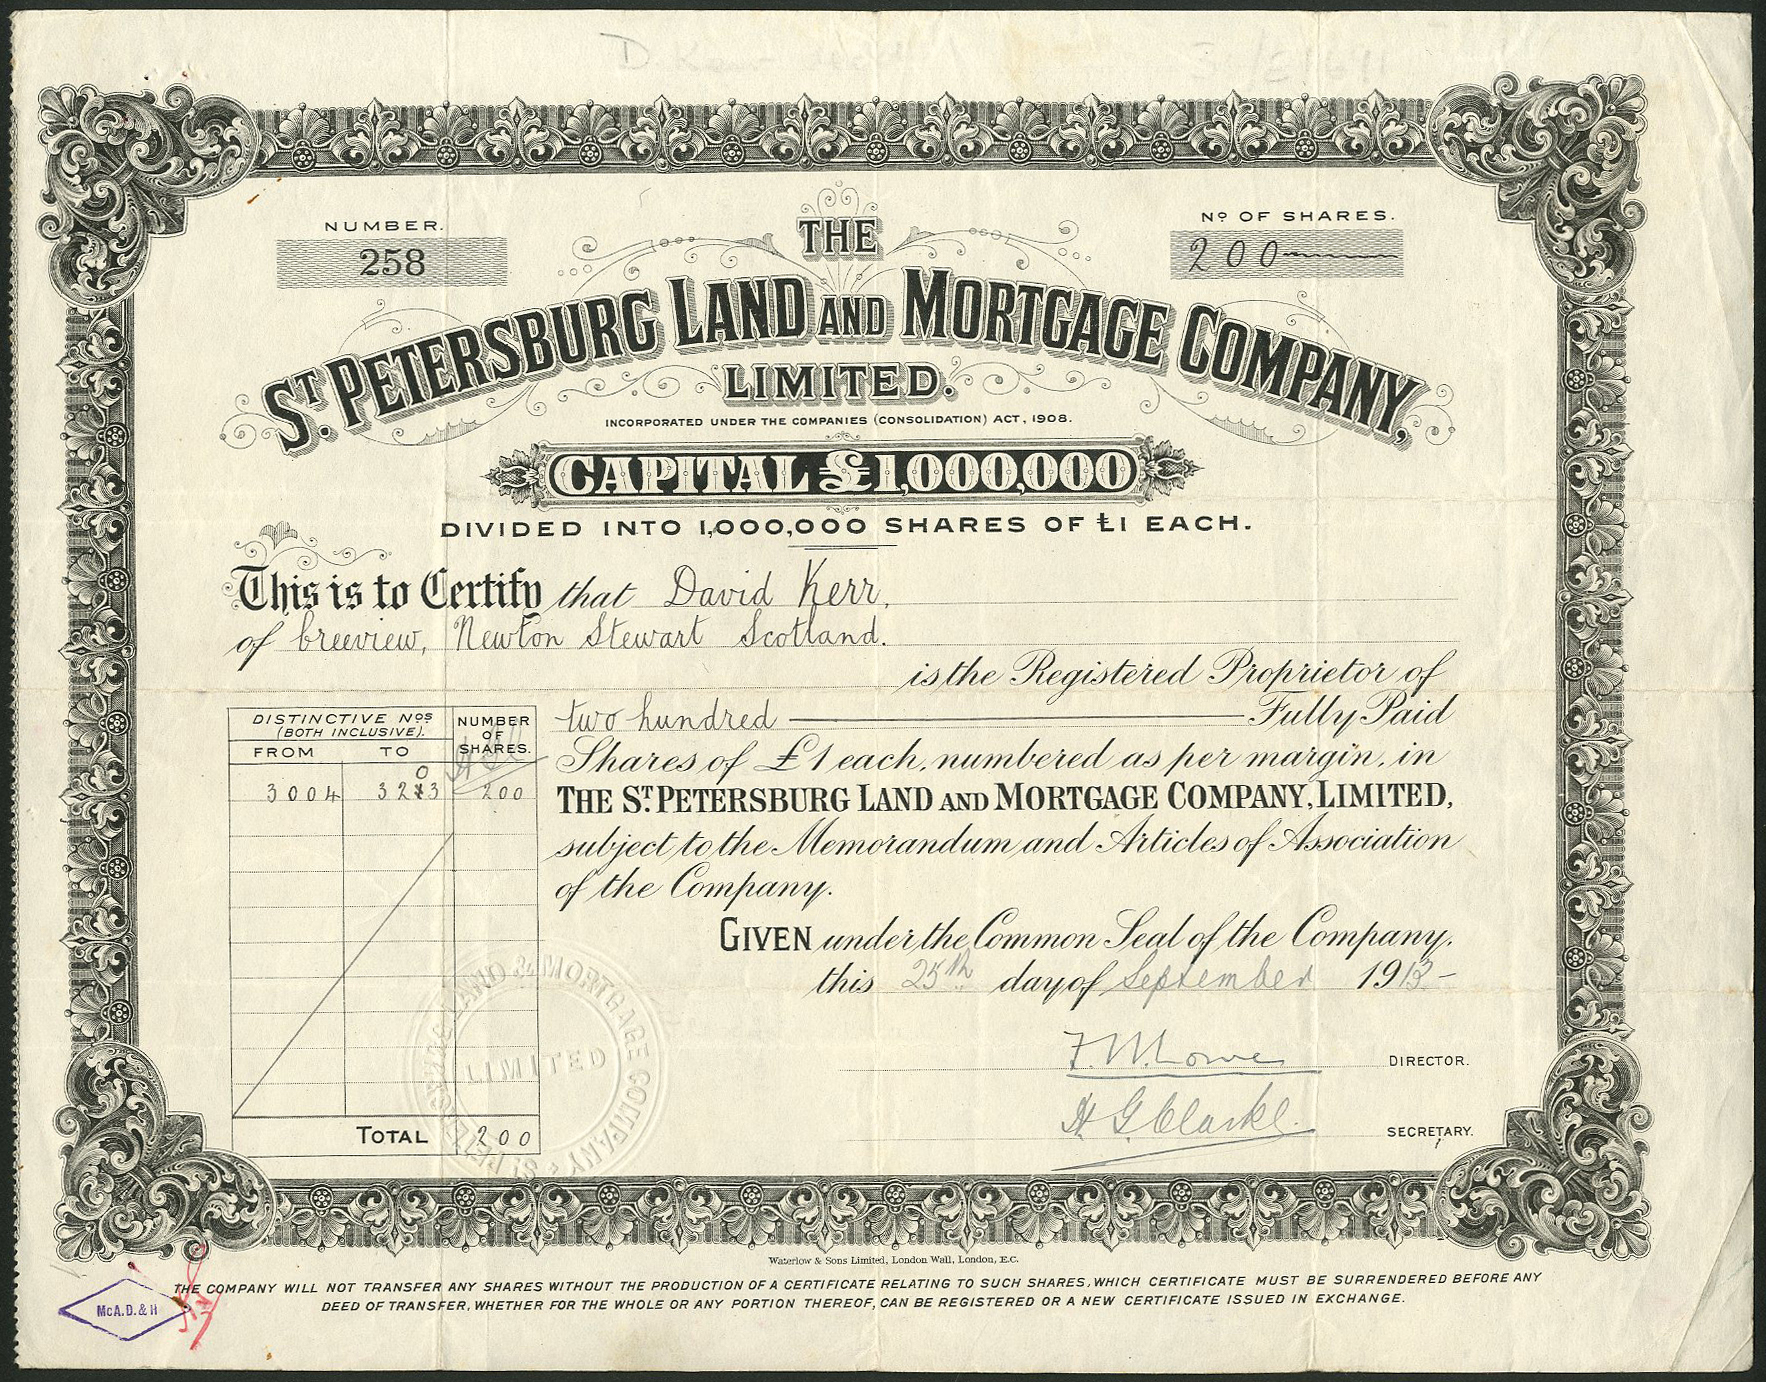 D. Kerr
NUMBER.
258
Nº OF SHARES.
200
THE
ST. PETERSBURG LAND AND MORTGAGE COMPANY,
LIMITED.
INCORPORATED UNDER THE COMPANIES (CONSOLIDATION) ACT, 1908.
CAPITAL £1,000,000
DIVIDED INTO 1,000,000 SHARES OF £1 EACH.
This is to Certify that David Kerr,
of Creeview, Newton Stewart Scotland.
is the Registered Proprietor of
two hundred Fully Paid
Shares of £1 each, numbered as per margin, in
THE ST. PETERSBURG LAND AND MORTGAGE COMPANY, LIMITED,
subject to the Memorandum and Articles of Association
of the Company.
DISTINCTIVE NOS (BOTH INCLUSIVE).
NUMBER OF SHARES.
FROM TO
3004 3203 200
TOTAL 200
GIVEN under the Common Seal of the Company,
this 25th day of September 1913
F. W. Lowe DIRECTOR.
H. G. Clarke. SECRETARY.
ST. PETERSBURG LAND & MORTGAGE COMPANY
LIMITED
Waterlow & Sons Limited, London Wall, London, E.C.
THE COMPANY WILL NOT TRANSFER ANY SHARES WITHOUT THE PRODUCTION OF A CERTIFICATE RELATING TO SUCH SHARES, WHICH CERTIFICATE MUST BE SURRENDERED BEFORE ANY
DEED OF TRANSFER, WHETHER FOR THE WHOLE OR ANY PORTION THEREOF, CAN BE REGISTERED OR A NEW CERTIFICATE ISSUED IN EXCHANGE.
McA.D. & H